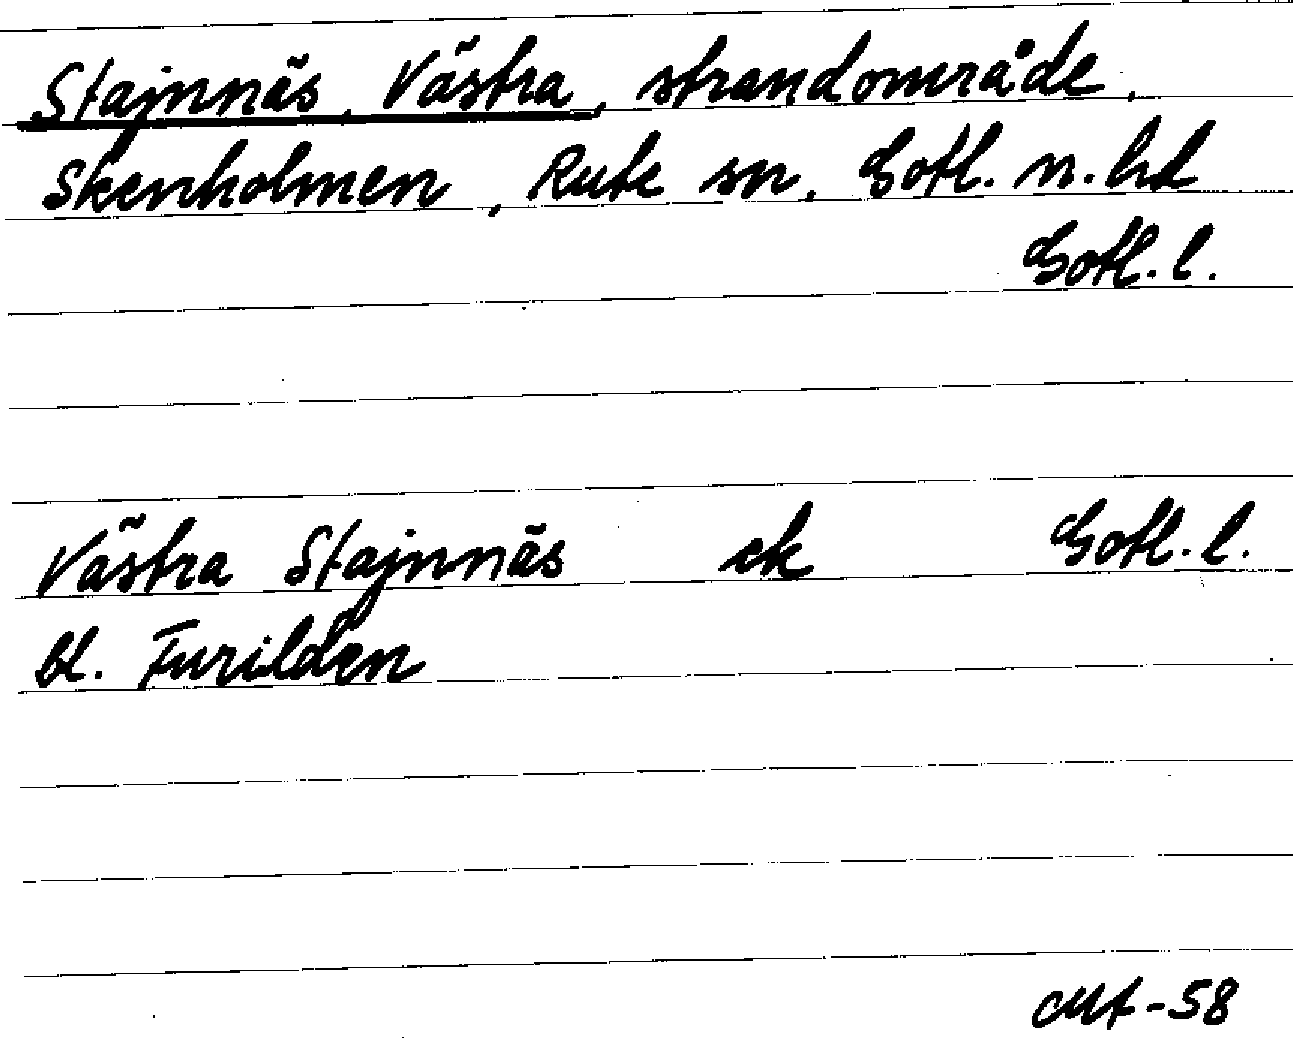 Stajnnäs, Västra, strandområde,
Skenholmen, Rute sn, Gotl. n. hd
Gotl. l.
Västra Stajnnäs ek Gotl. l.
bl. Furilden
-58